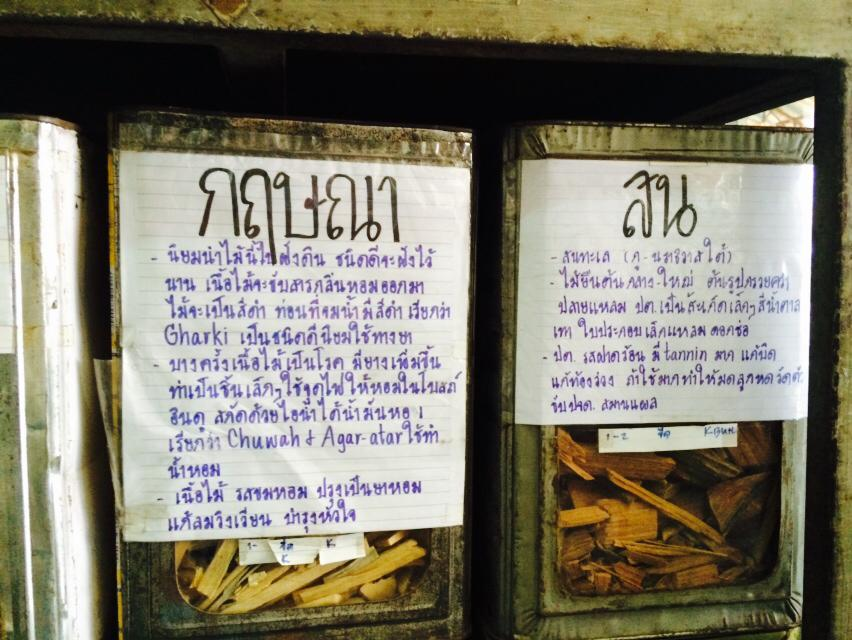 กฤษณา
- นิยมนำไม้นี้ไปฝังดิน ชนิดดีจะฝังไว้
นาน เนื้อไม้จะขับสารกลิ่นหอมออกมา
ไม้จะเป็นสีดำ ท่อนที่จมน้ำมีสีดำ เรียกว่า
Gharki เป็นชนิดดีนิยมใช้ทางยา
- บางครั้งเนื้อไม้เป็นโรค มียางเพิ่มขึ้น
ทำเป็นชิ้นเล็กๆใช้จุดไฟให้หอมในโบสถ์
ฮินดู สกัดด้วยไอน้ำได้น้ำมันหอม
เรียกว่า Chuwah & Agar-atar ใช้ทำ
น้ำหอม
- เนื้อไม้ รสขมหอม ปรุงเป็นยาหอม
แก้ลมวิงเวียน บำรุงหัวใจ
1- จืด K
K
สน
- สนทะเล (ภู-นราธิวาสใต้)
- ไม้ยืนต้นกลาง-ใหญ่ ต้นรูปกรวยคว่ำ
ปลายแหลม ปต.เป็นสะเก็ดเล็กๆสีน้ำตาล
เทา ใบประกอบเล็กแหลม ดอกช่อ
- ปต. รสฝาดร้อน มี tannin มาก แก้บิด
แก้ท้องร่วง ถ้าใช้มากทำให้มดลูกหดรัดตัว
ขับปจด. สมานแผล
1-2 จืด KBUN